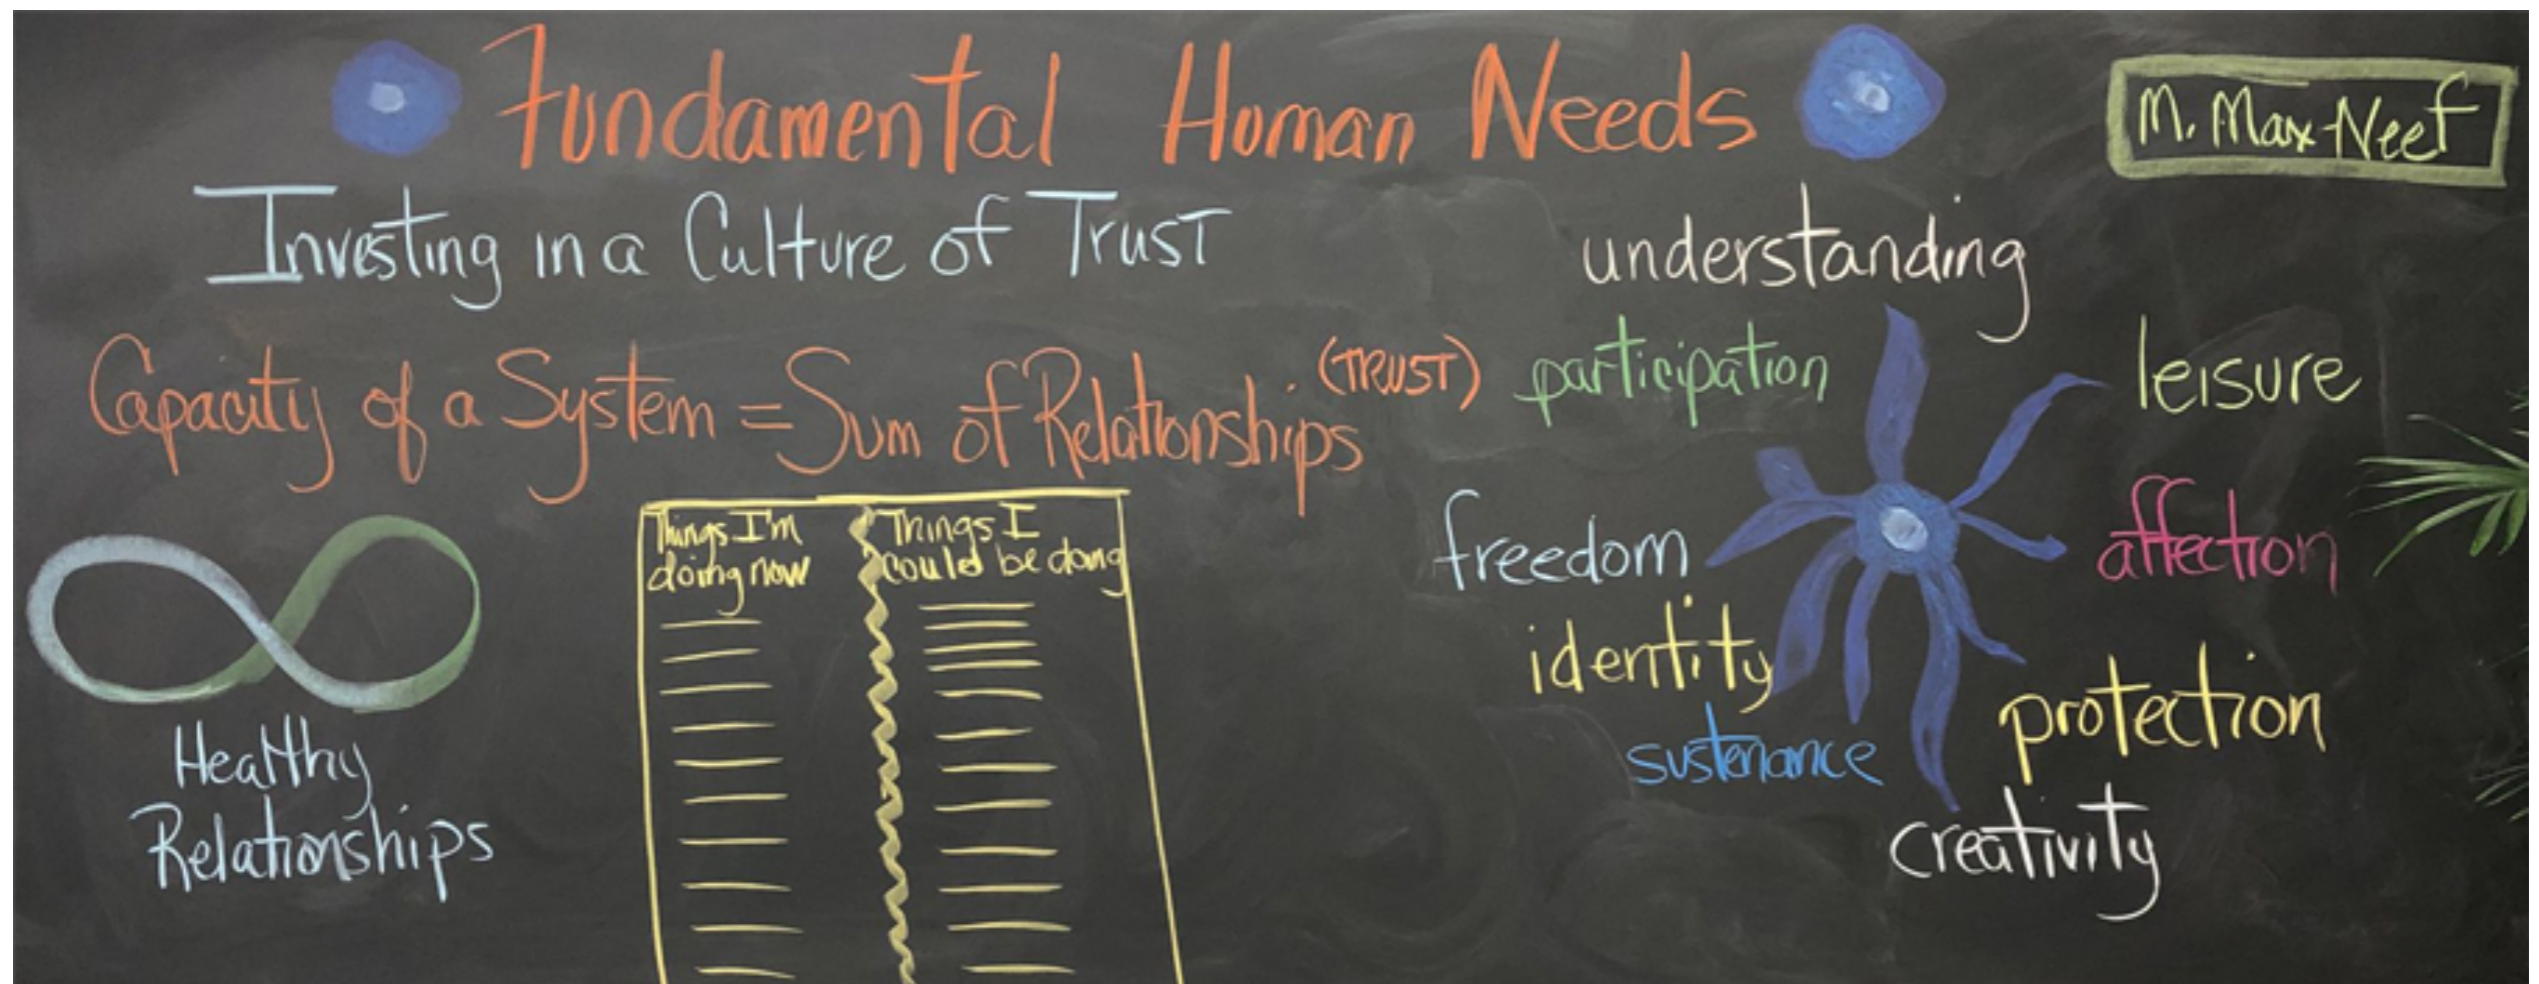 Fundamental Human Needs
M. Max-Neef
Investing in a Culture of Trust
Capacity of a System = Sum of Relationships (TRUST)
Healthy
Relationships
Things I'm
doing now
Things I
could be doing
understanding
participation
leisure
freedom
affection
identity
protection
sustenance
creativity